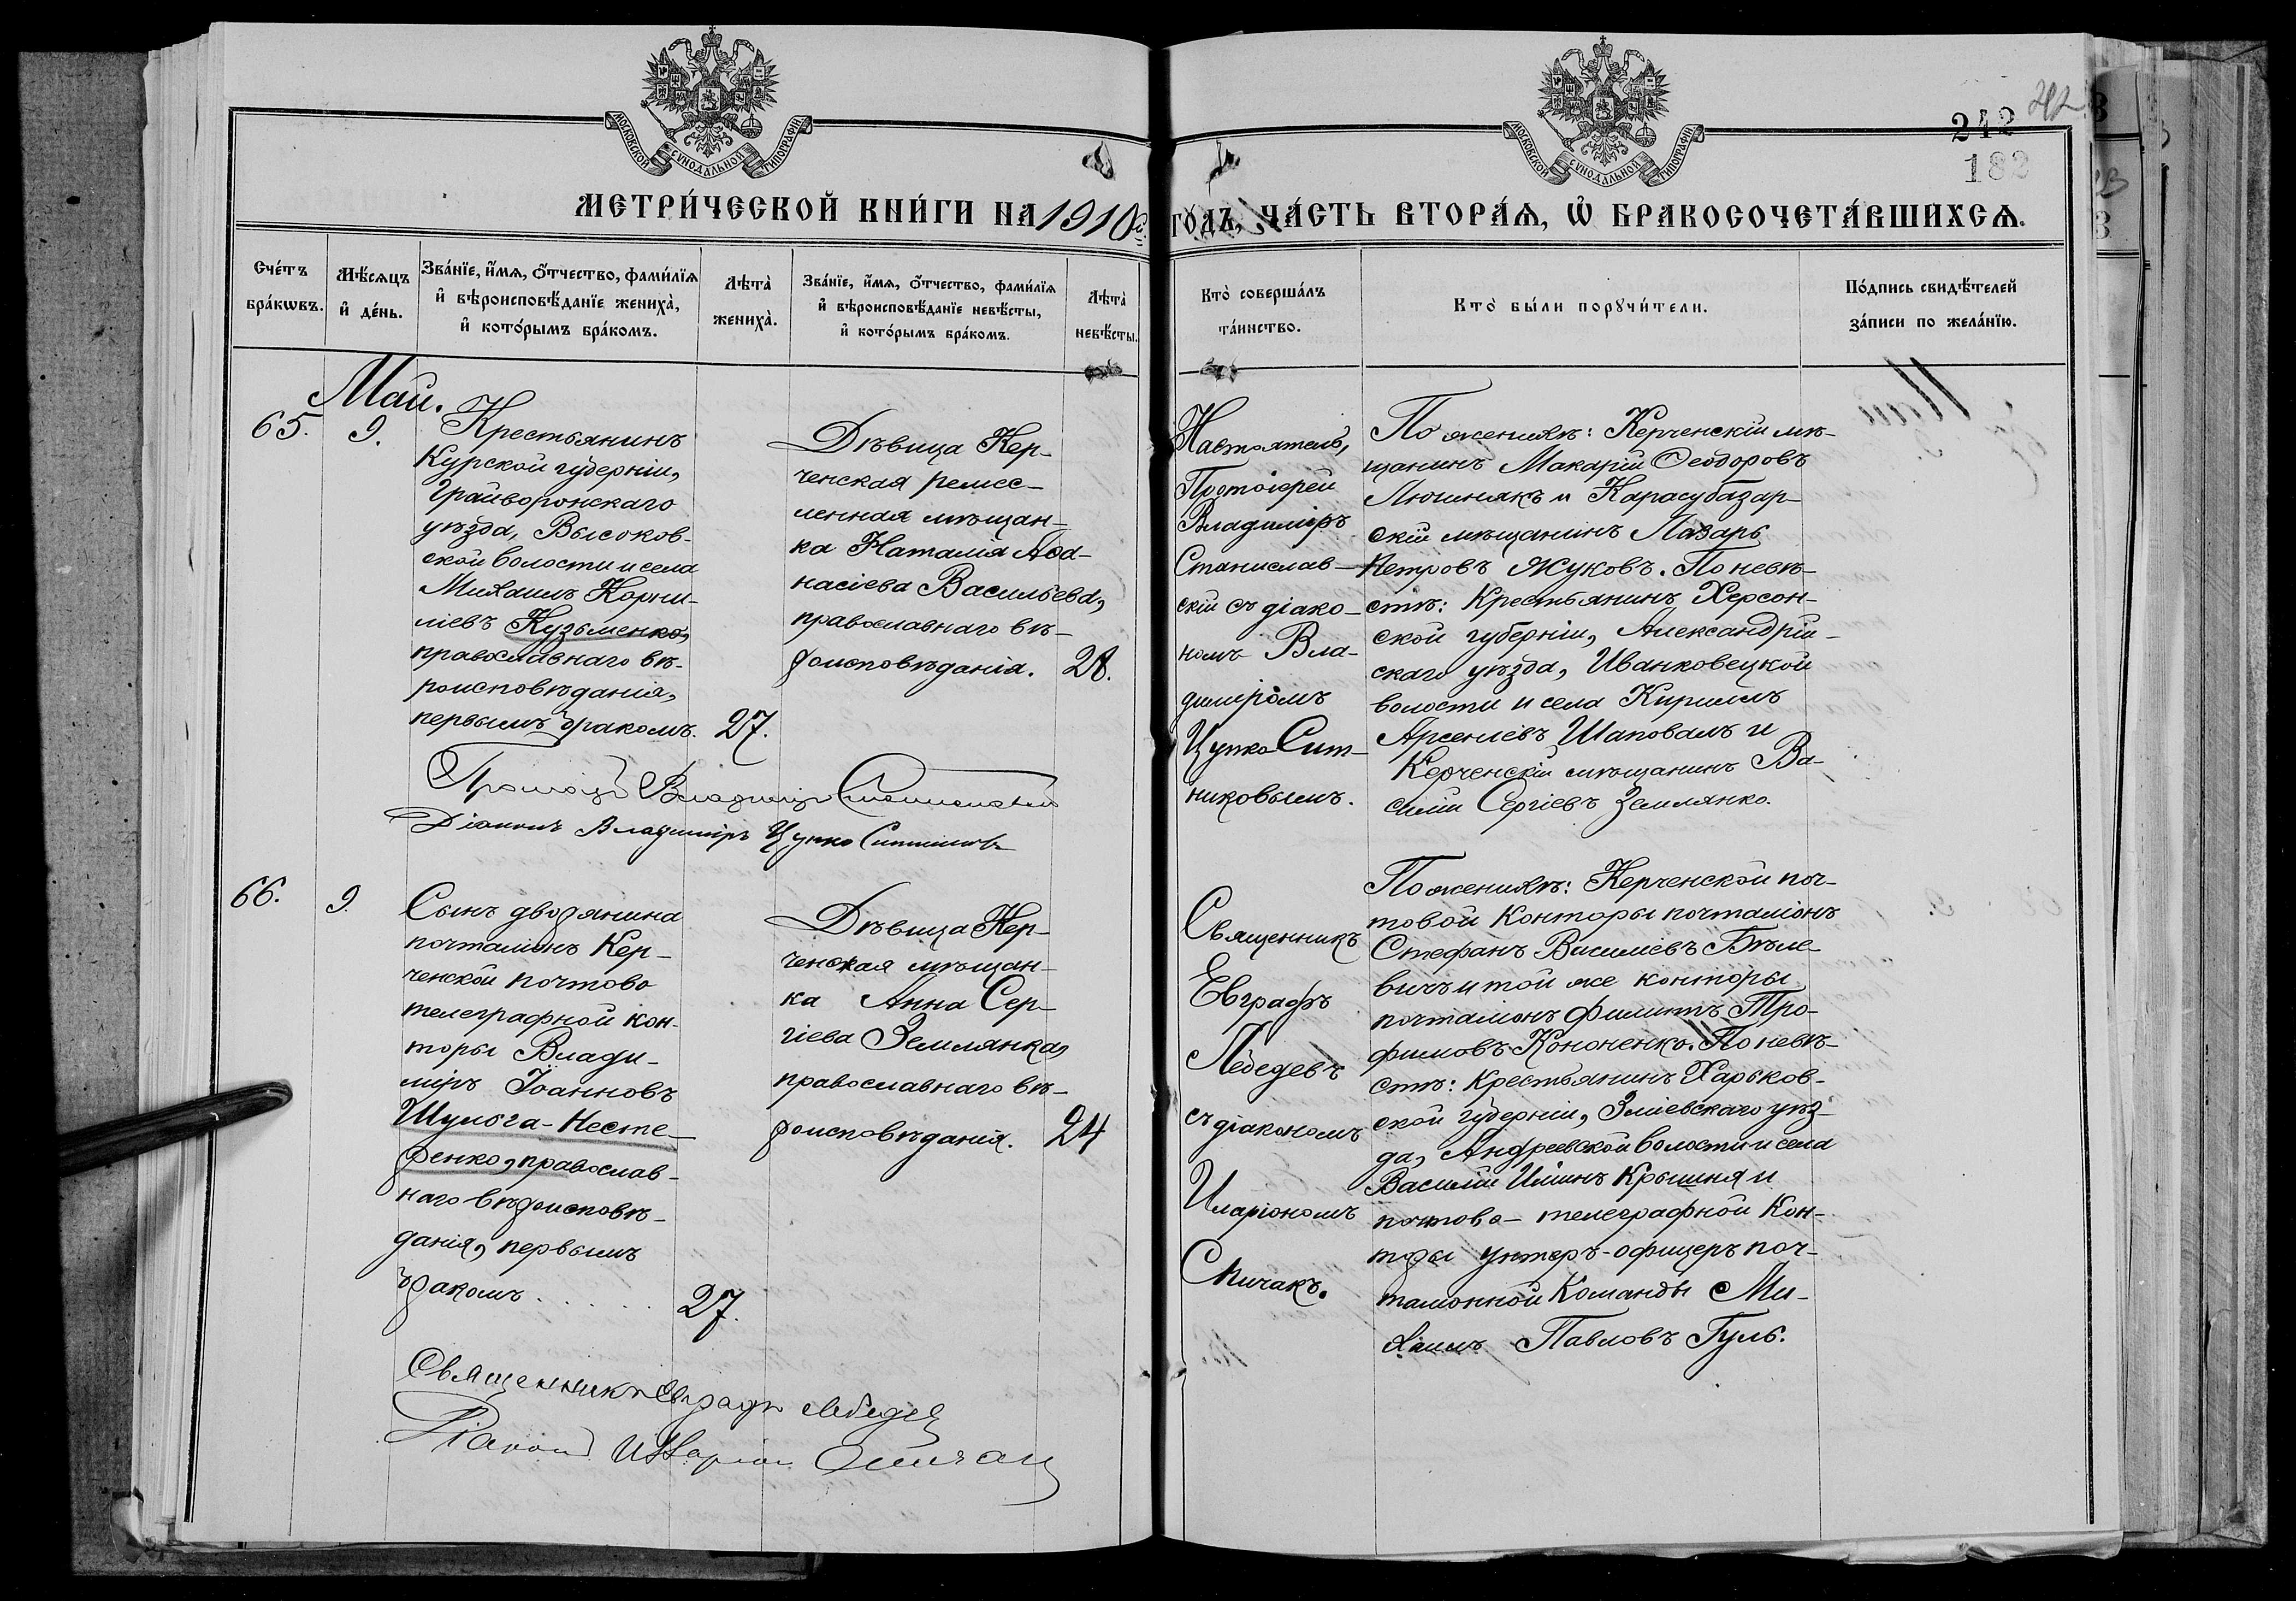 МОСКОВСКОЙ СѴНОДАЛЬНОЙ ТИПОГРАФІИ
МОСКОВСКОЙ СѴНОДАЛЬНОЙ ТИПОГРАФІИ
242
242
182
МЕТРИ́ЧЕСКОЙ КНИ́ГИ НА 1910й ГО́ДЪ, ЧА́СТЬ ВТОРА́Ѧ, Ѡ҆ БРАКОСОЧЕТА́ВШИХСѦ.
Сче́тъ
бра́кѡвъ.
Мѣ́сяцъ
и҆ де́нь.
Зва́нїе, и҆́мѧ, ѻ҆́тчество, фами́лїѧ
и҆ вѣроисповѣ́данїе жениха̀,
и҆ кото́рымъ бра́комъ.
Лѣта̀
жениха̀.
Зва́нїе, и҆́мѧ, ѻ҆́тчество, фами́лїѧ
и҆ вѣроисповѣ́данїе невѣ́сты,
и҆ кото́рымъ бра́комъ.
Лѣта̀
невѣ́сты.
Кто̀ соверша́лъ
та́инство.
Кто̀ бы́ли порꙋчи́тели.
По́дпись свидѣ́телей
за́писи по жела́нїю.
Май.
65.
9.
Крестьянинъ
Курской губерніи,
Грайворонскаго
уѣзда, Высоков-
ской волости и села
Михаилъ Корни-
ліевъ Кузьменко,
православнаго вѣ-
роисповѣданія,
первымъ бракомъ.
27.
Дѣвица Кер-
ченская ремес-
ленная мѣщан-
ка Наталія Аѳа-
насіева Васильева,
православнаго вѣ-
роисповѣданія.
28.
Настоятель,
Протоіерей
Владиміръ
Станислав-
скій съ діако-
номъ Вла-
диміромъ
Цупко Сит-
никовымъ.
По женихѣ: Керченскій мѣ-
щанинъ Макарій Ѳеодоровъ
Люшнякъ и Карасубазар-
скій мѣщанинъ Лазарь
Петровъ Жуковъ. По невѣ-
стѣ: Крестьянинъ Херсон-
ской губерніи, Александрій-
скаго уѣзда, Иванковецкой
волости и села Кириллъ
Арсеніевъ Шаповалъ и
Керченскій мѣщанинъ Ва-
силій Сергіевъ Землянко.
Владиміръ
Діаконъ Владиміръ Цупко Ситниковъ
66.
9.
Сынъ дворянина
почталіонъ Кер-
ченской почтово
телеграфной кон-
торы Влади-
міръ Іоанновъ
Шулога-Несте-
ренко, православ-
наго вѣроисповѣ-
данія, первымъ
бракомъ . . . . . .
27.
Дѣвица Кер-
ченская мѣщан-
ка Анна Сер-
гіева Землянка,
православнаго вѣ-
роисповѣданія.
24
Священникъ
Евграфъ
Лебедевъ
съ діакономъ
Иларіономъ
Спичакъ.
По женихѣ: Керченской поч-
товой Конторы почталіонъ
Стефанъ Василіевъ Бѣле-
вичъ и той же конторы
почталіонъ Филиппъ Тро-
фимовъ Кононенко. По невѣ-
стѣ: Крестьянинъ Харьков-
ской губерніи, Зміевскаго уѣз-
да, Андреевской волости и села
Василій Ильинъ Крышня и
почтово- телеграфной Кон-
торы унтеръ-офицеръ поч-
таліонной Команды Ми-
хаилъ Павловъ Гуль.
Священникъ Евграфъ Лебедев
Діаконъ Илларіон Спичак